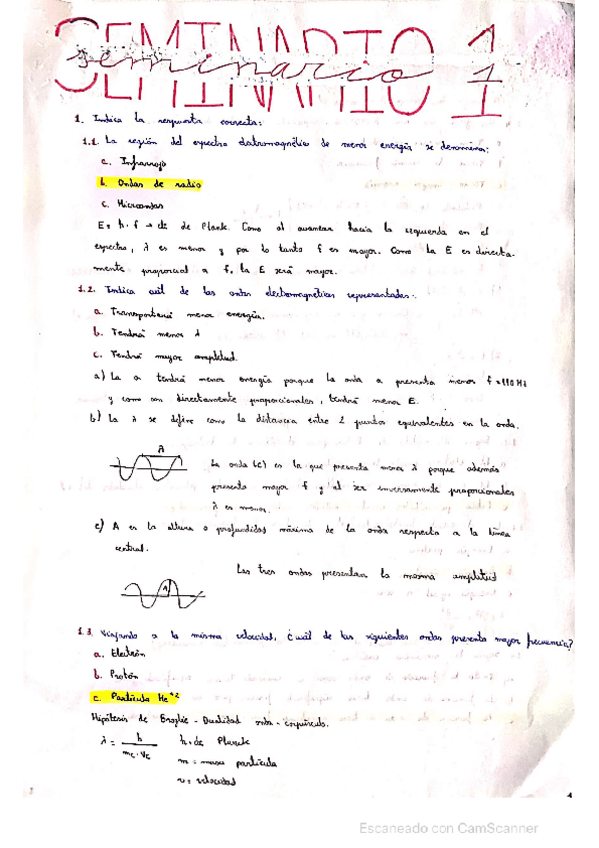 SEMINARIO 1
seminario 1
1. Indica la respuesta correcta:
1.1. La región del espectro electromagnético de menor energía se denomina:
a. Infrarrojo
b. Ondas de radio
c. Microondas
E = h · f → cte de Plank. Como al avanzar hacia la izquierda en el
espectro, λ es menor y por lo tanto f es mayor. Como la E es directa-
mente proporcial a f, la E será mayor.
1.2. Indica cuál de las ondas electromagnéticas representadas:
a. Transportará menor energía.
b. Tendrá menor λ
c. Tendrá mayor amplitud.
a) La a tendrá menor energía porque la onda a presenta menor f = 110 Hz
y como son directamente proporcionales, tendrá menor E.
b) La λ se define como la distancia entre 2 puntos equivalentes en la onda.
λ
La onda (c) es la que presenta menor λ porque además
presenta mayor f y al ser inversamente proporcionales
λ es menor.
c) A es la altura o profundidad máxima de la onda respecto a la línea
central.
Las tres ondas presentan la misma amplitud
A
1.3. Viajando a la misma velocidad, ¿cuál de las siguientes ondas presenta mayor frecuencia?
a. Electrón
b. Protón
c. Partícula He+2
Hipótesis de Broglie - Dualidad onda - corpúsculo.
λ = h / m · v h = cte Planck
m = masa partícula
v = velocidad
1
Escaneado con CamScanner